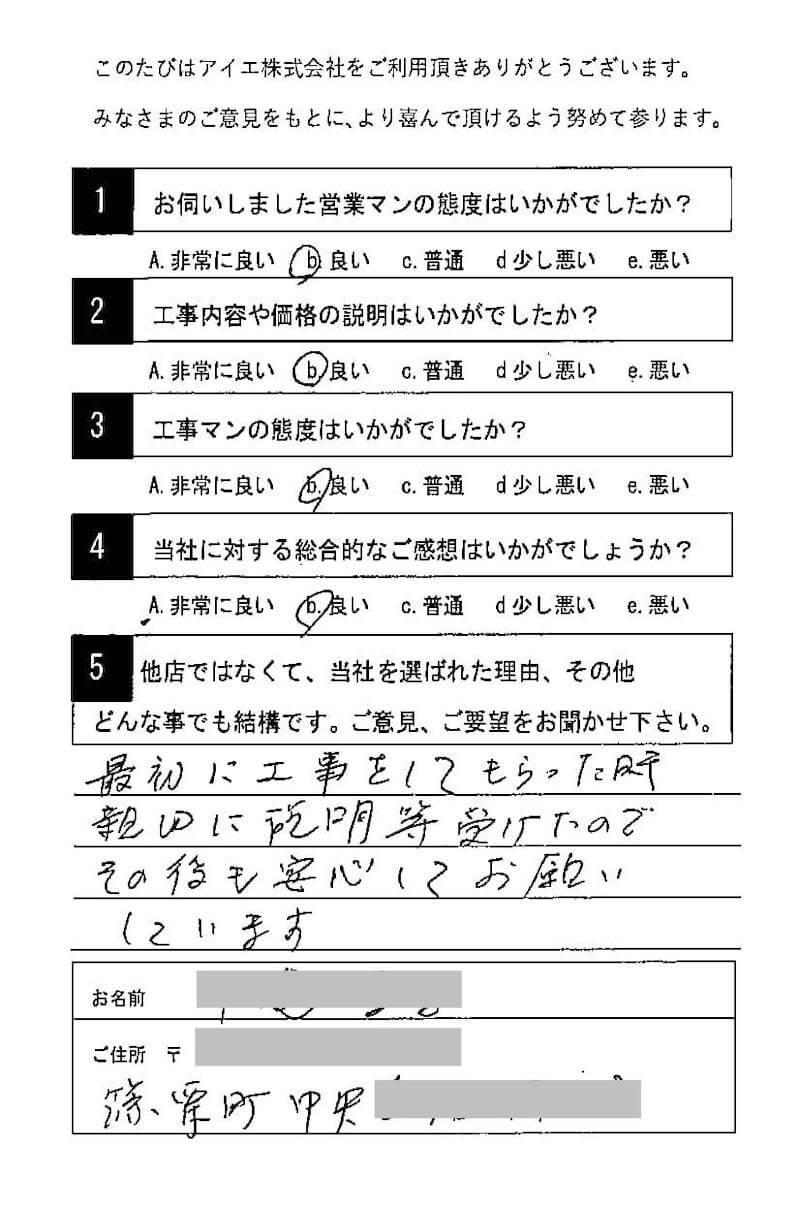 このたびはアイエ株式会社をご利用頂きありがとうございます。
みなさまのご意見をもとに、より喜んで頂けるよう努めて参ります。
1 お伺いしました営業マンの態度はいかがでしたか？
A. 非常に良い b. 良い c. 普通 d 少し悪い e. 悪い
2 工事内容や価格の説明はいかがでしたか？
A. 非常に良い b. 良い c. 普通 d 少し悪い e. 悪い
3 工事マンの態度はいかがでしたか？
A. 非常に良い b. 良い c. 普通 d 少し悪い e. 悪い
4 当社に対する総合的なご感想はいかがでしょうか？
A. 非常に良い b. 良い c. 普通 d 少し悪い e. 悪い
5 他店ではなくて、当社を選ばれた理由、その他
どんな事でも結構です。ご意見、ご要望をお聞かせ下さい。
最初に工事をしてもらった所
親切に説明等受けたので
その後も安心してお願い
しています
お名前
ご住所 〒
篠栗町中央